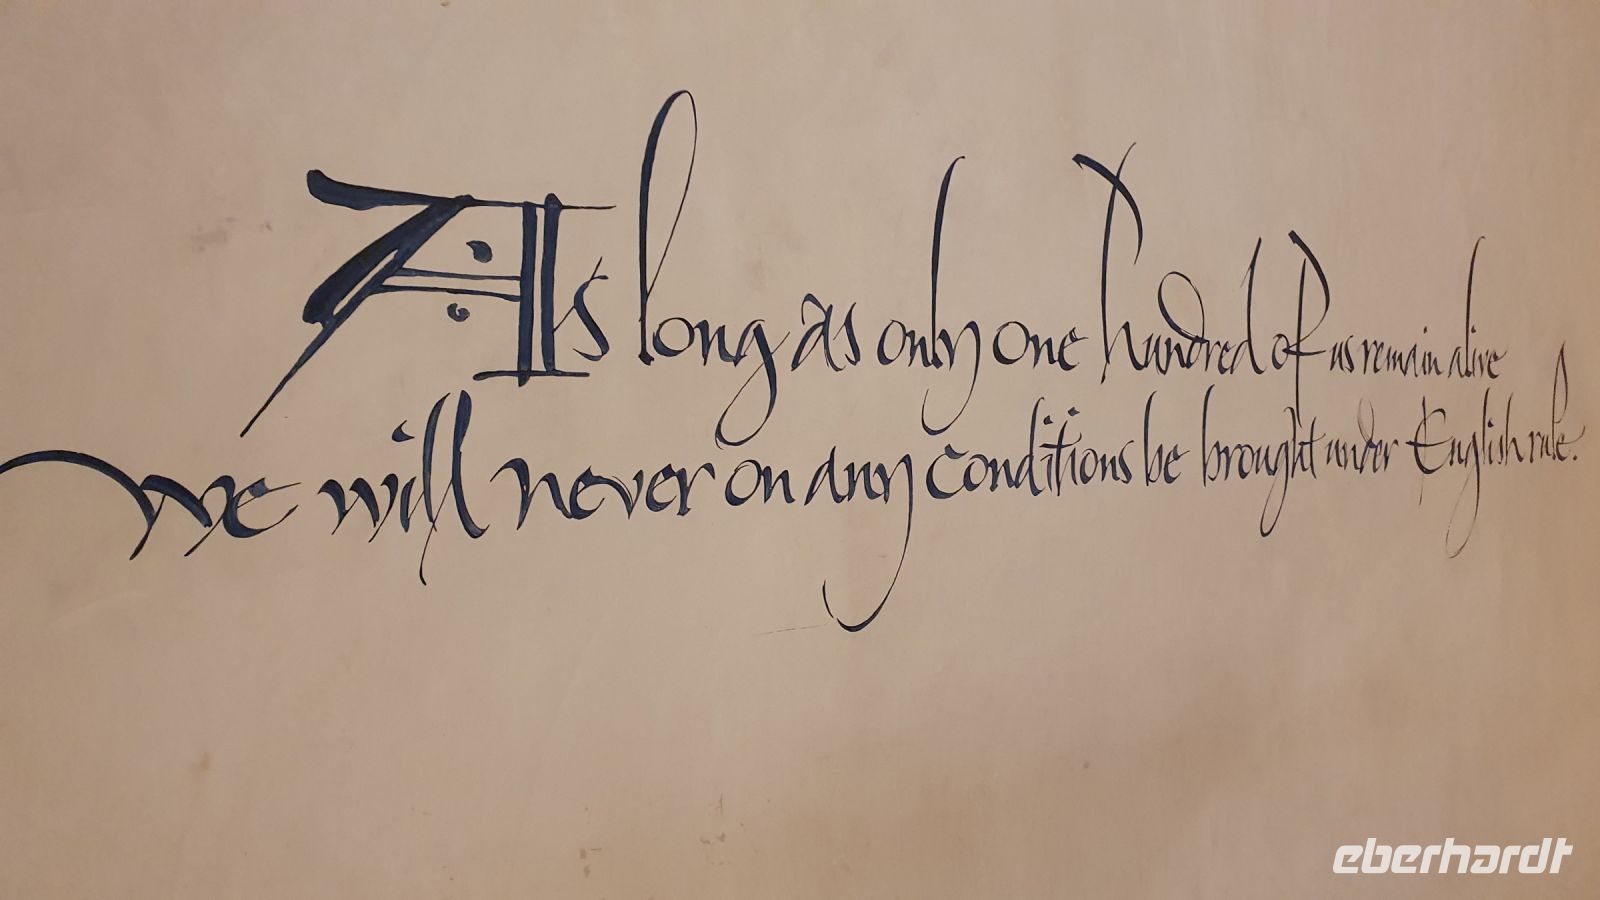 As long as only one hundred of us remain alive
we will never on any conditions be brought under English rule.
eberhardt